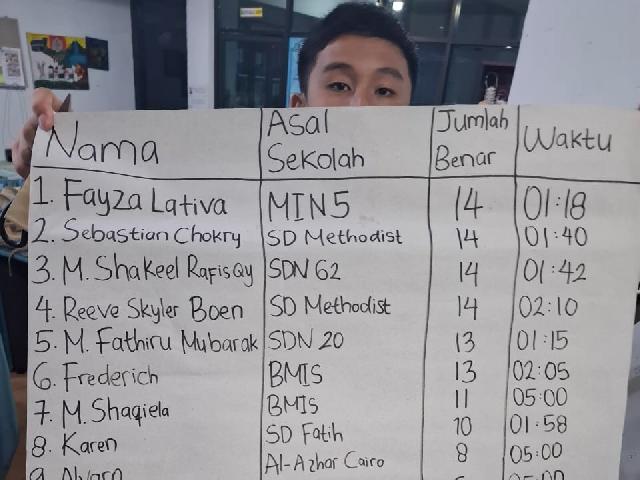 Nama Asal Sekolah Jumlah Benar Waktu
1. Fayza Lativa MIN 5 14 01:18
2. Sebastian Chokry SD Methodist 14 01:40
3. M. Shakeel Rafisqy SDN 62 14 01:42
4. Reeve Skyler Boen SD Methodist 14 02:10
5. M. Fathiru Mubarak SDN 20 13 01:15
6. Frederich BMIS 13 02:05
7. M. Shaqiela BMIS 11 05:00
8. Karen SD Fatih 10 01:58
9. Alvaro Al-Azhar Cairo 8 05:00
05:00